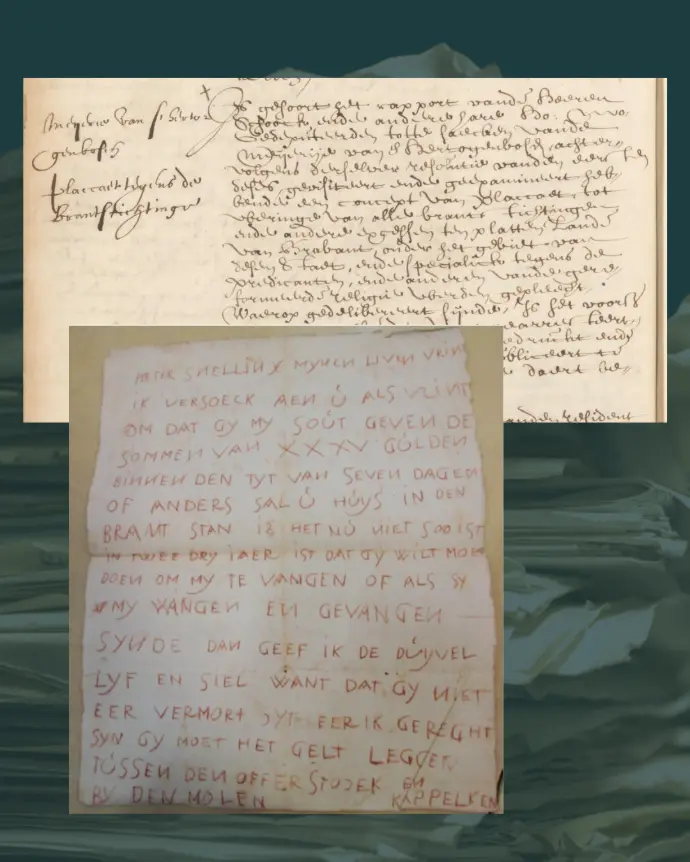 Meijerie van s'Herto-
genbosch
Placcaet tegens de
Brantstichtinge
Is gehoort het rapport vande Heeren
ende andere hare Ho: Mo:
Gedeputeerden totte saecken vande
Meijerije van s'Hertogenbosch, achter-
volgens derselver resolutie vanden
deses gevisiteert ende geexamineert heb-
bende een concept van Placcaet, tot
weringe van alle brant stichtingen
ende andere excessen ten platten Lande
van Brabant, onder het gebiet van
desen Staet, ende specialick tegens de
predicanten, ende anderen vande gere-
formeerde religie werden gepleecht.
Waerop gedelibereert sijnde, Is het voors
gedruckt ende
publiceert te
daert be-
anden resident
PETER SNELLINX MYNEN LIVEN VRINT
IK VERSOECK AEN U ALS VRINT
OM DAT GY MY SOUT GEVEN DE
SOMMEN VAN XXXV GULDEN
BINNEN DEN TYT VAN SEVEN DAGEN
OF ANDERS SAL U HUYS IN DEN
BRANT STAN IS HET NU NIET SOO IST
IN TWEE DRY IAER IST DAT GY WILT MOET
DOEN OM MY TE VANGEN OF ALS SY
MY VANGEN EN GEVANGEN
SYNDE DAN GEEF IK DE DUYVEL
LYF EN SIEL WANT DAT GY NIET
EER VERMORT SYT EER IK GEREGHT
SYN GY MOET HET GELT LEGGEN
TUSSEN DEN OFFERSTOCK EN
BY DEN MOLEN KAPPELKEN